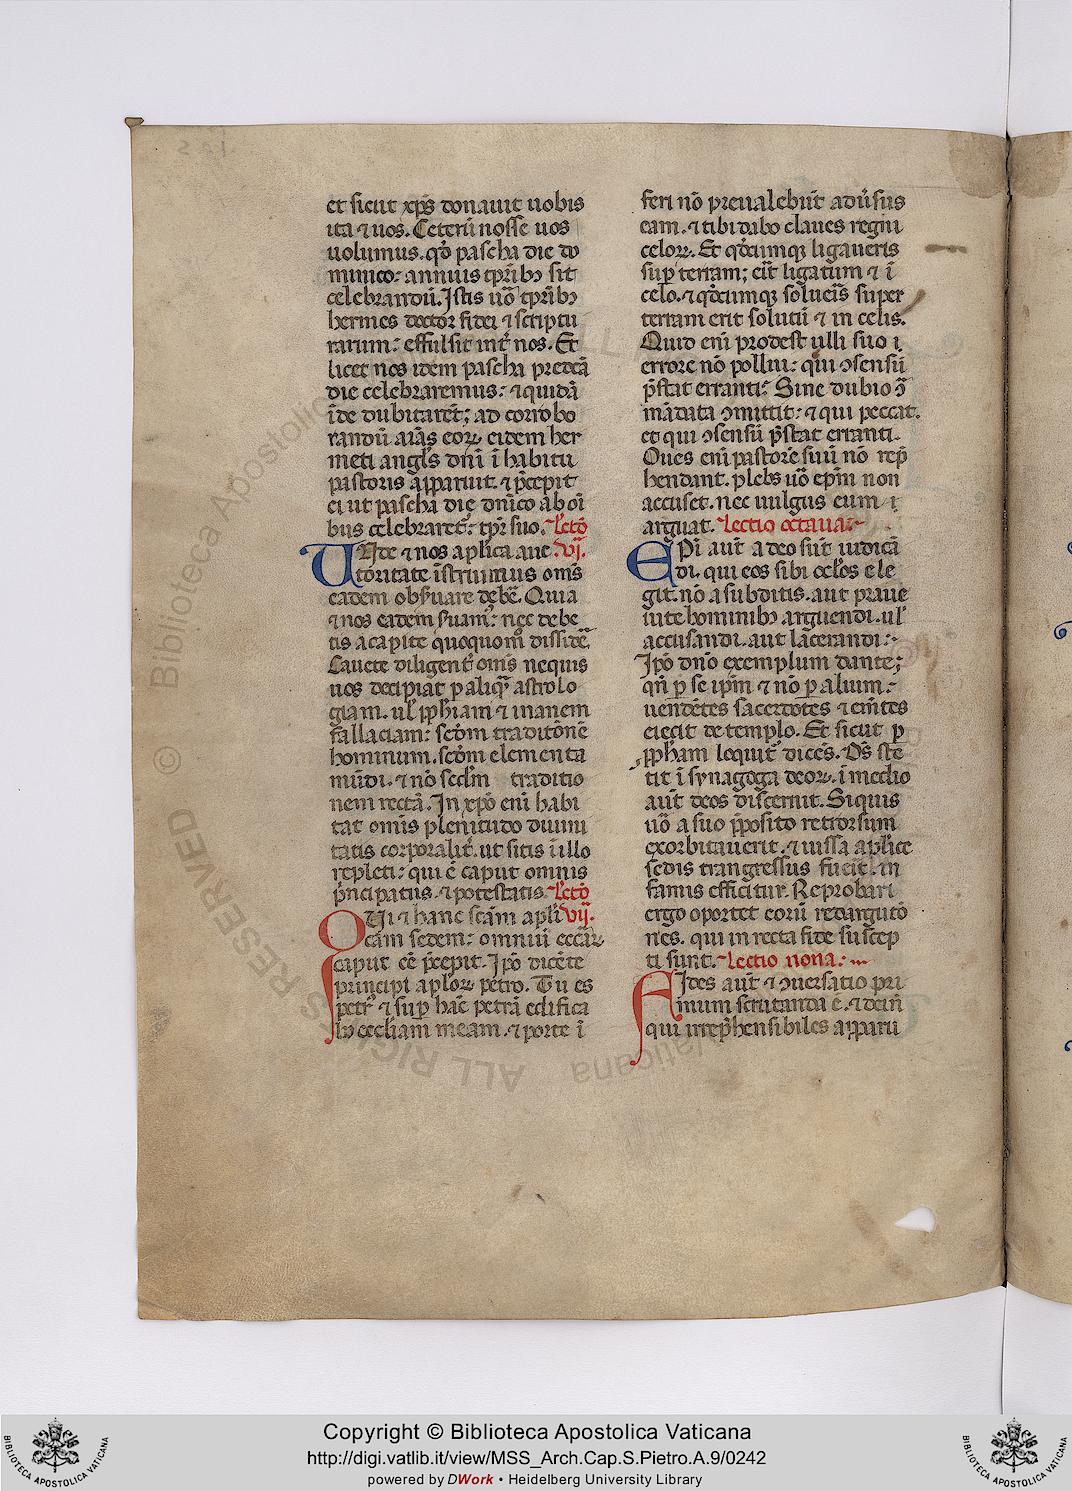 et sicut xp̄s donauit uobis
ita ⁊ uos. Ceterū nosse uos
uolumus. qđ pascha die do
minico: annuis tp̄ribꝫ sit
celebrandū. Istis uō tp̄ribꝫ
hermes doctor fidei ⁊ scriptu
rarum: effulsit int̄ nos. Et
licet nos idem pascha predcā
die celebraremus: ⁊ quidā
īde dubitarēt; ad corrobo
randū aīas eoꝝ eidem her
meti angl̄s dn̄i ī habitu
pastoris apparuit. ⁊ p̄cepit
ei ut pascha die dn̄ico ab oī
bus celebraret᷑. tp̄r suo. Letō
VNde ⁊ nos aplica auc vj.
toritate īstruimus om̄s
eadem obs̄uare debē. Quia
⁊ nos eadem s̄uam᷒: nec debe
tis a capite quoquom̄ dissidē.
Cauete diligent̄ om̄s nequis
uos decipiat p aliqȝ astrolo
giam. ul̄ pphiam ⁊ inanem
fallaciam: scđm traditōnē
hominum. scđm elementa
mūdi. ⁊ nō scđm traditio
nem rectā. In xp̄o eni habi
tat omīs plenitudo diuini
tatis corporalit̄. ut sitis ī illo
repleti: qui ē caput omnis
p̄ncipatus. ⁊ potestatis. Letō
QUi ⁊ hanc scām apli vij.
cām sedem: omniū ecc̄aꝝ
caput eē p̄cepit. Ip̄o dicēte
principi aploꝝ petro. Tu es
petr᷒ ⁊ sup̄ hāc petrā edifica
bo eccliam meam. ⁊ porte ī
feri nō preualebūt aduȓsus
eam. ⁊ tibi dabo claues regni
celoꝝ. Et qđcumqȝ ligaueris
sup̄ terram; eīt ligatum ⁊ ī
celo. ⁊ qđcumqȝ solueīs super
terram erit solutū ⁊ in celis.
Quid eni prodest ulli suo ī
errore nō pollui: qui ꝯsensū
p̄stat erranti? Sine dubio ꝯ̄
mādata ꝯmittit: ⁊ qui peccat.
et qui ꝯsensū p̄stat erranti.
Oues eni pastorē suū nō rep̄
hendant. plebs uō ep̄m non
accuset. nec uulgus eum ī
arguat. Lectio octaua:
EPi aut̄ a deo sūt iudicā
di. qui eos sibi oc̄los ele
git. nō a subditis. aut praue
uite hominibꝫ arguendi. ul̄
accusandi. aut lac̄erandi:
Ip̄o dn̄o exemplum dante;
qn̄ p se ip̄m ⁊ nō p alium:
uendētes sacerdotes ⁊ em̄tes
eiecit de templo. Et sicut p
ppham loquit᷑ dicēs. Ds̄ ste
tit ī synagoga deoꝝ. ī medio
aut̄ deos discernit. Siquis
uō a suo p̄posito retrorsum
exorbitauerit. ⁊ iussa aplice
sedis trangressus fueīt. in
famis efficitur. Reprobari
ergo oportet eorū redargutō
nes. qui in recta fide suscep
ti sunt. Lectio nona:
FIdes aut̄ ⁊ ꝯuersatio pri
mum scrutanda ē. ⁊ dein̄
qui irrep̄hensibiles apparu
Copyright © Biblioteca Apostolica Vaticana
http://digi.vatlib.it/view/MSS_Arch.Cap.S.Pietro.A.9/0242
powered by DWork • Heidelberg University Library
BIBLIOTECA APOSTOLICA VATICANA
BIBLIOTECA APOSTOLICA VATICANA
© Biblioteca Apostolica Vaticana
ALL RIGHTS RESERVED